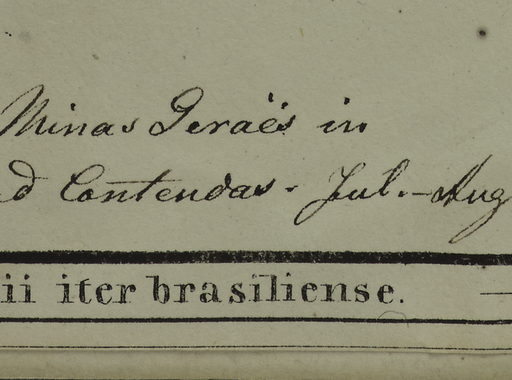 Minas Geraës in
ad Contendas. Jul.-Aug
ii iter brasiliense.